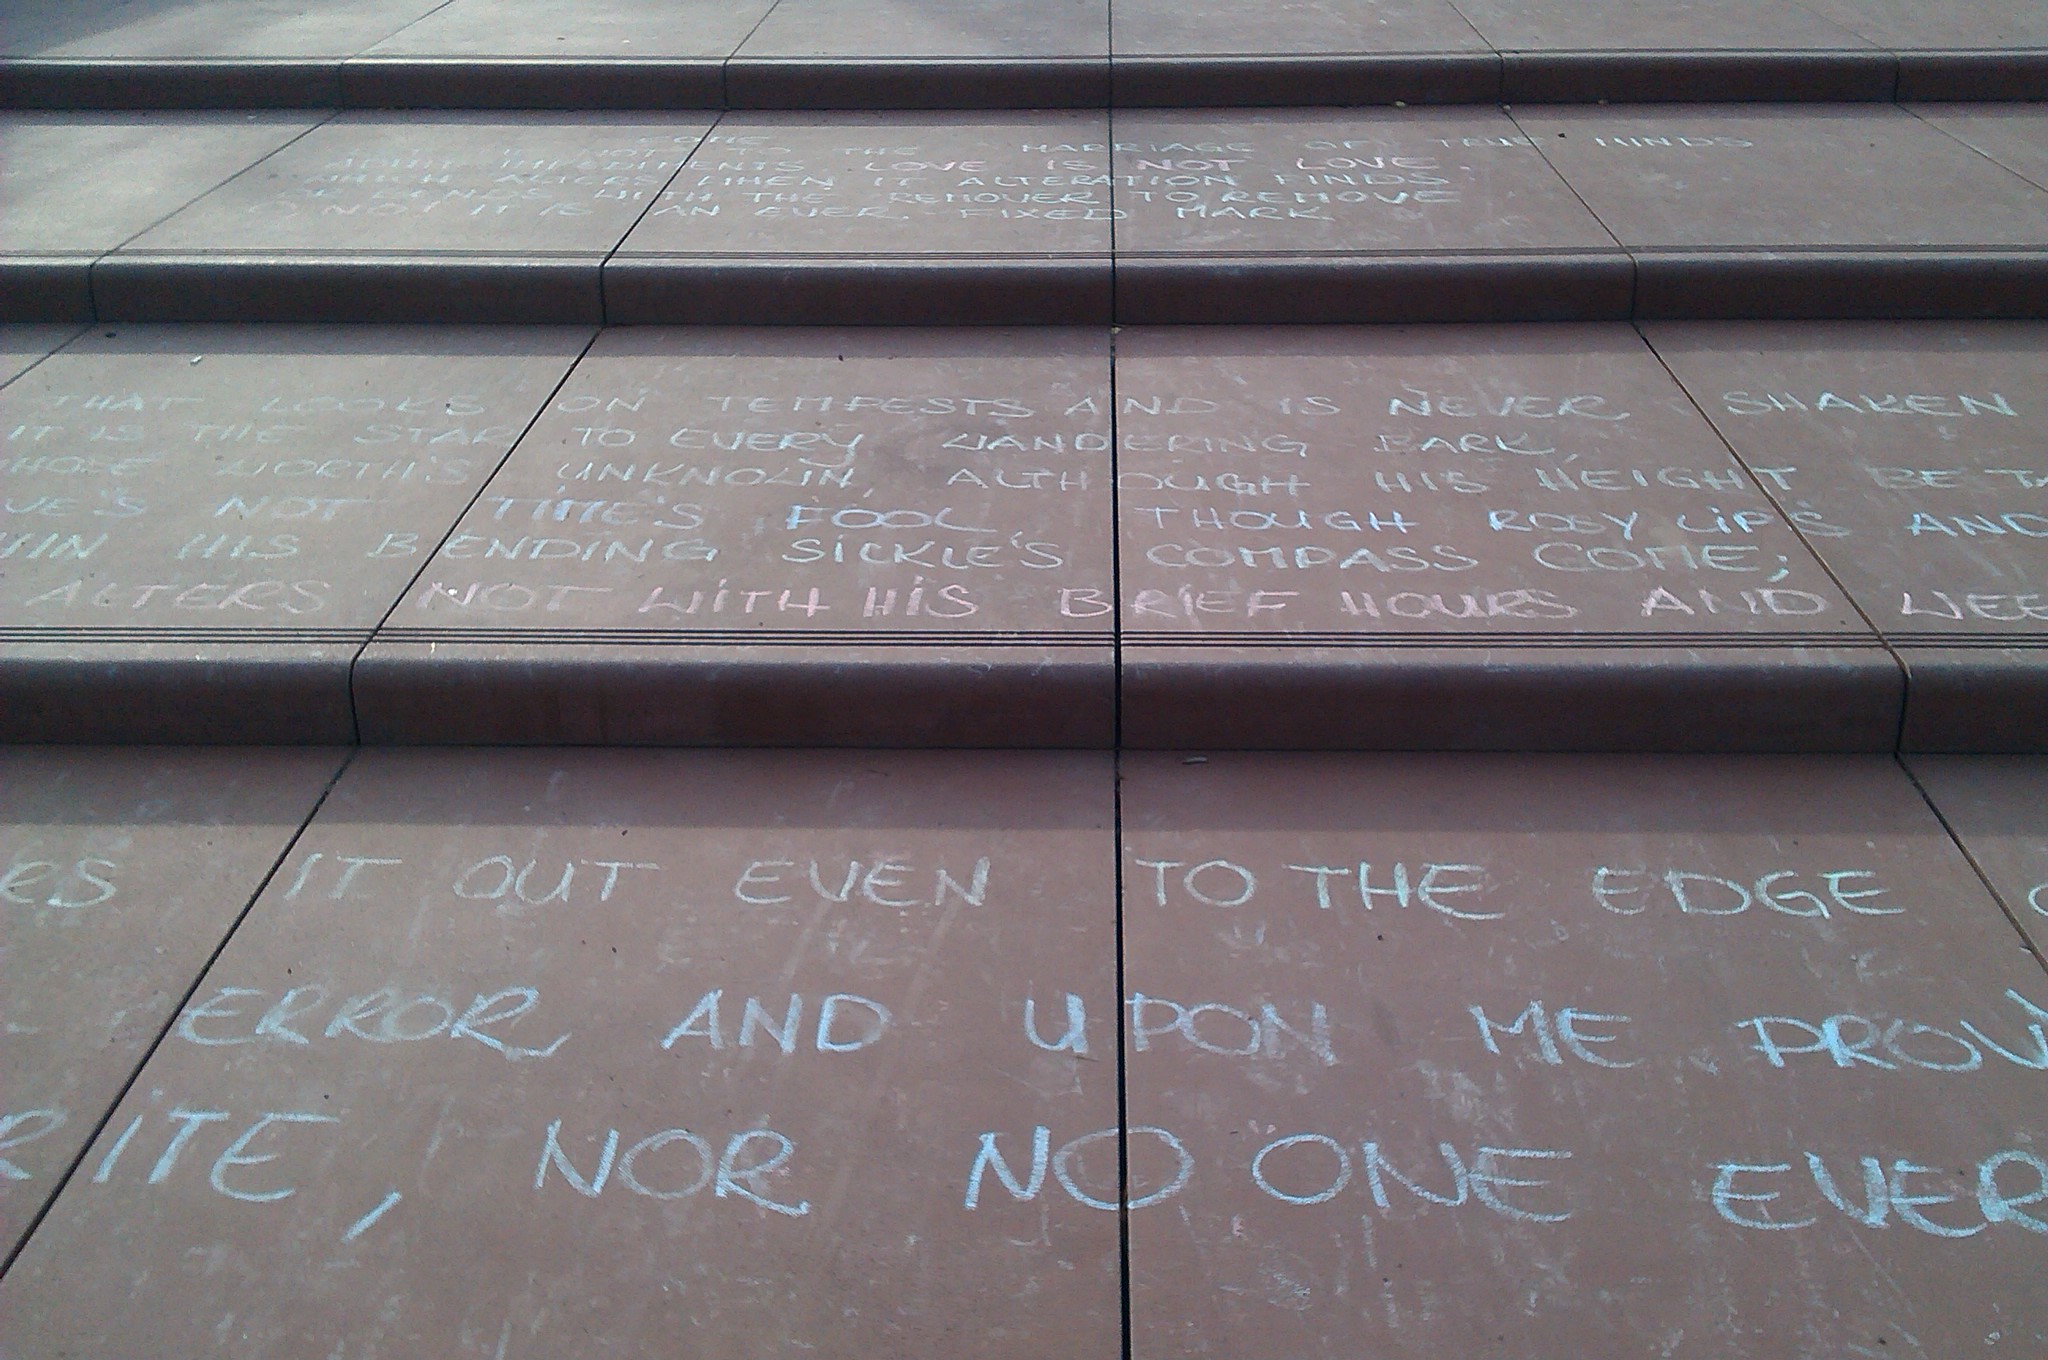 COME
NOT TO THE MARRIAGE OF TRUE MINDS
ADMIT IMPEDIMENTS LOVE IS NOT LOVE.
WHICH ALTERS WHEN IT ALTERATION FINDS
OR BENDS WITH THE REMOVER TO REMOVE
O NO! IT IS AN EVER. FIXED MARK
THAT LOOKS ON TEMPESTS AND IS NEVER SHAKEN
IT IS THE STAR TO EVERY WANDERING BARK,
WHOSE WORTH'S UNKNOWN, ALTHOUGH HIS HEIGHT BE TA
VE'S NOT TIME'S FOOL, THOUGH ROSY LIP'S AND
HIN HIS BENDING SICKLE'S COMPASS COME;
ALTERS NOT WITH HIS BRIEF HOURS AND WEE
ES IT OUT EVEN TO THE EDGE O
ERROR AND UPON ME PROV
RITE, NOR NO ONE EVER